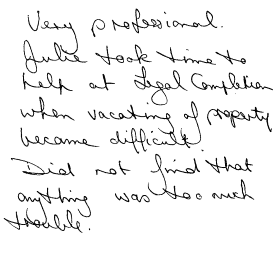 Very professional.
Julie took time to
help at Legal Completion
when vacating of property
became difficult.
Did not find that
anything was too much
trouble.